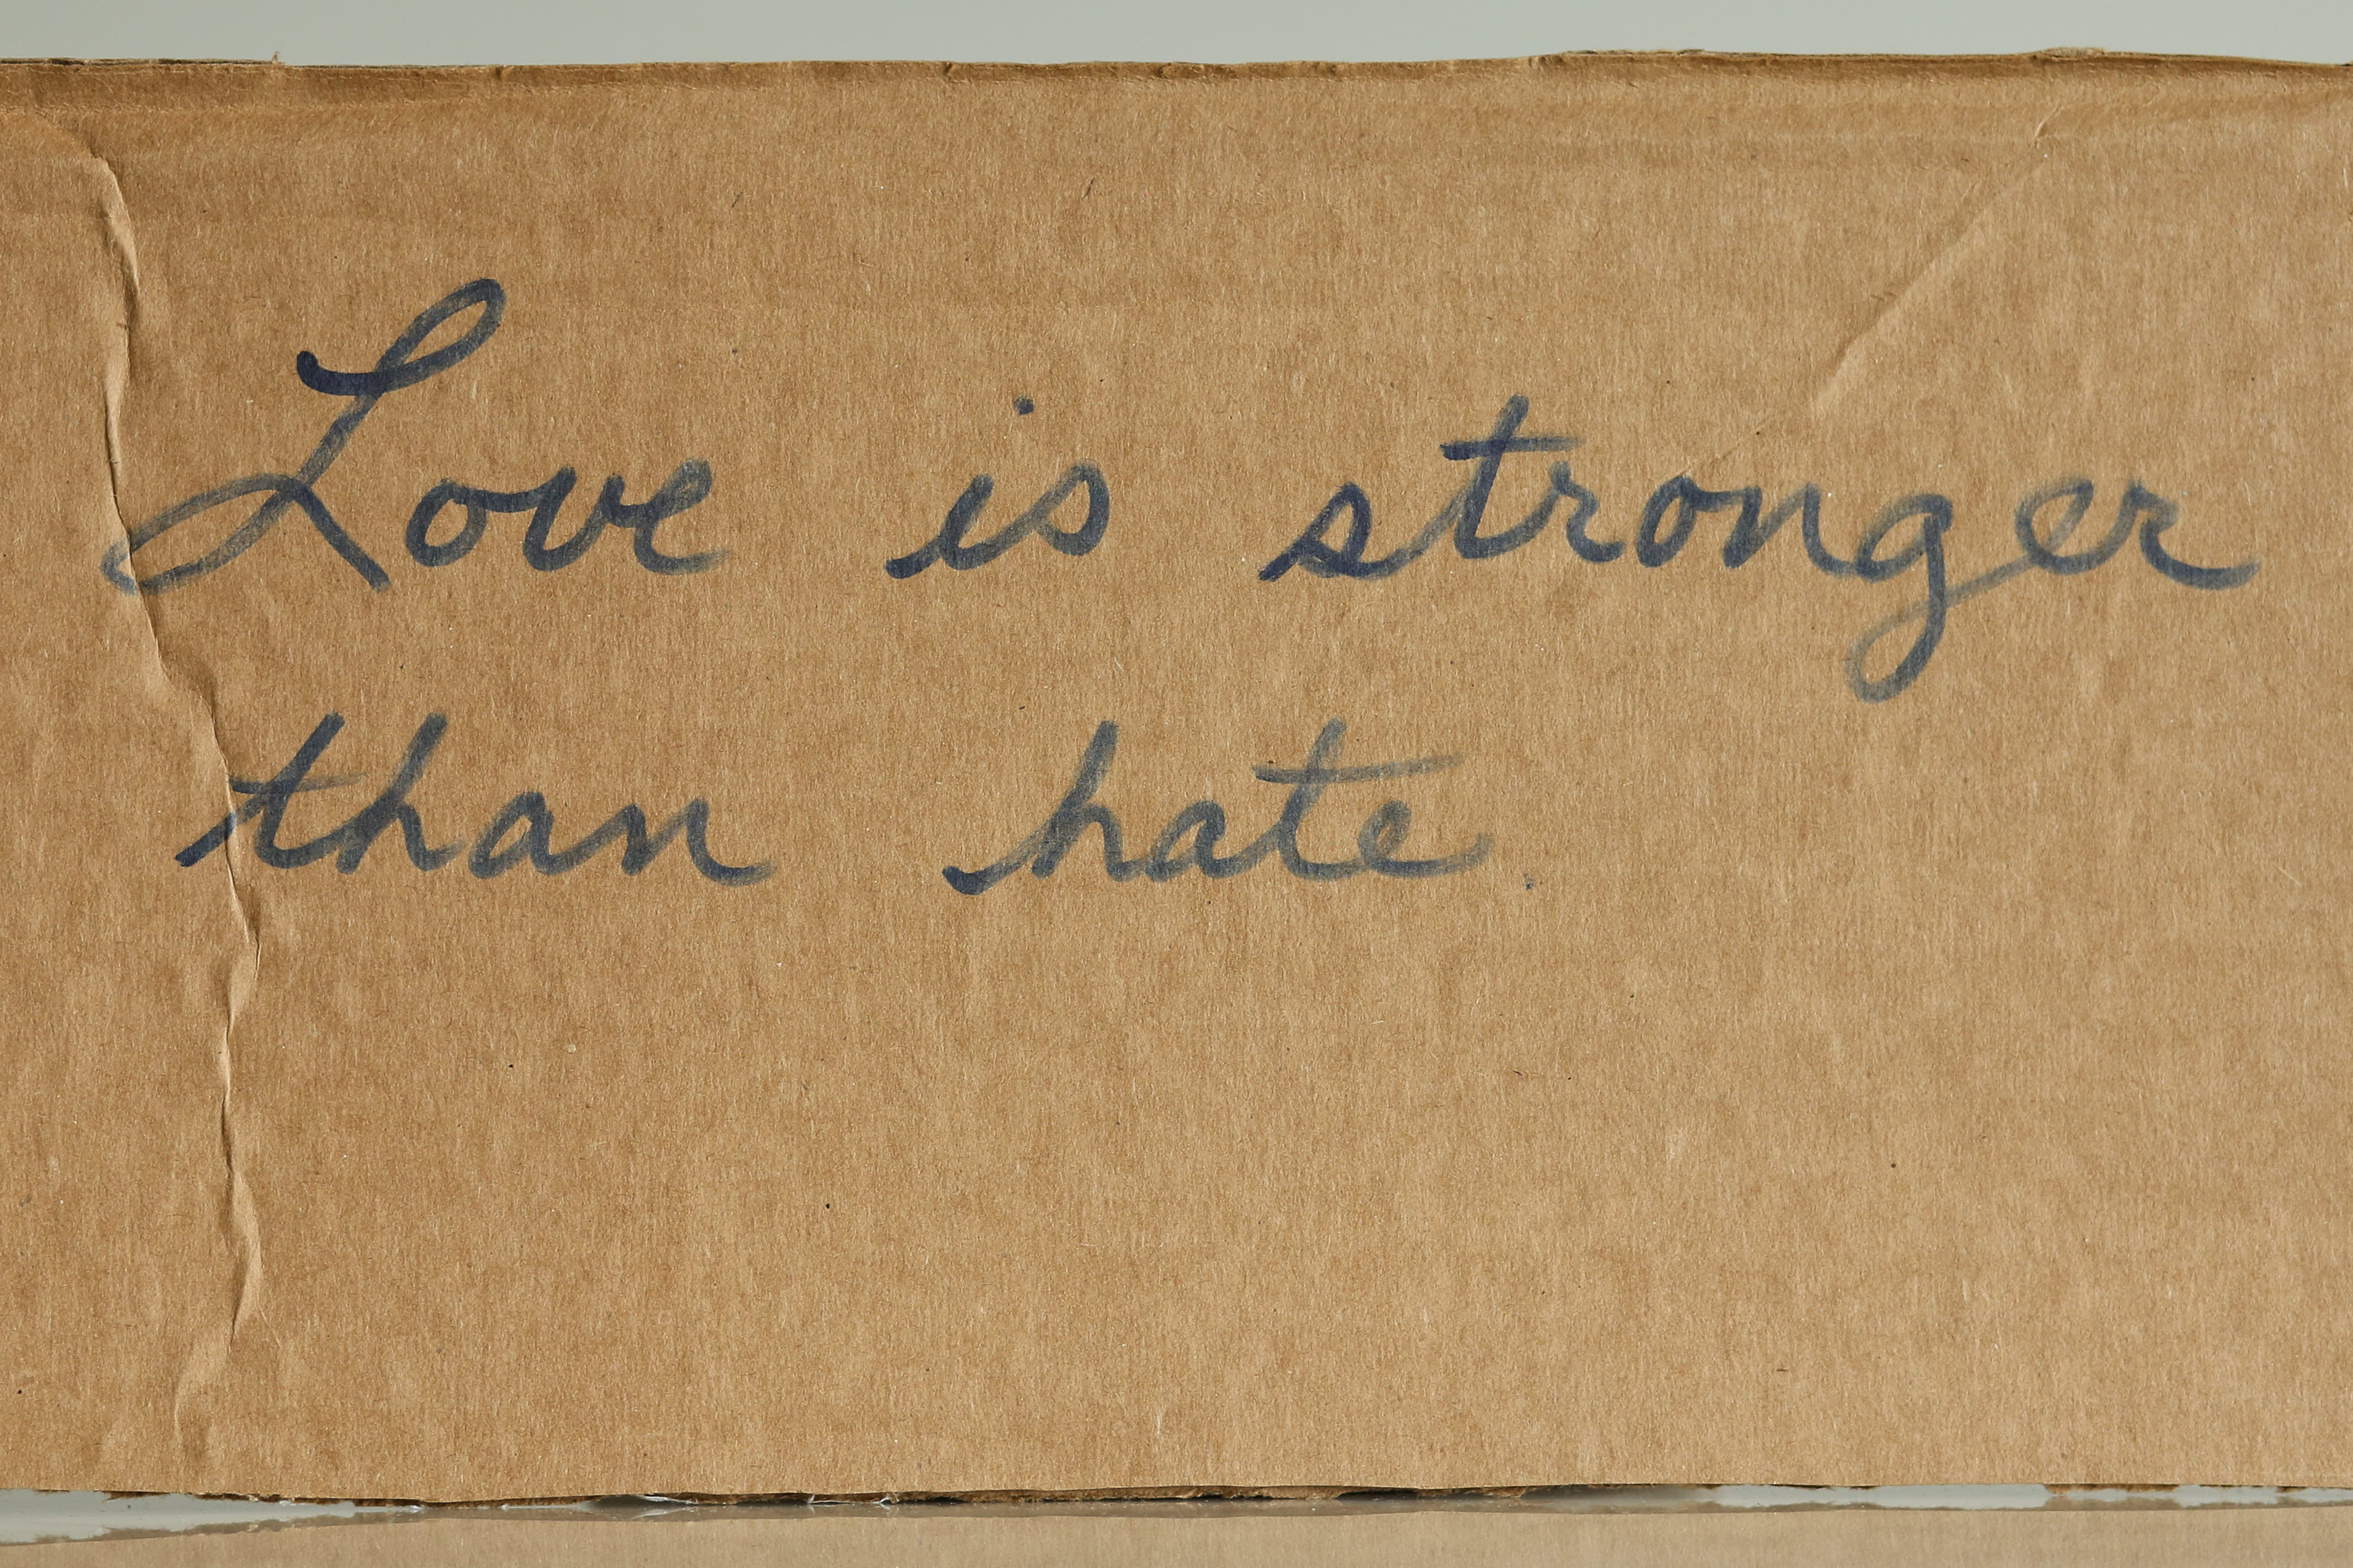 Love is stronger
than hate.